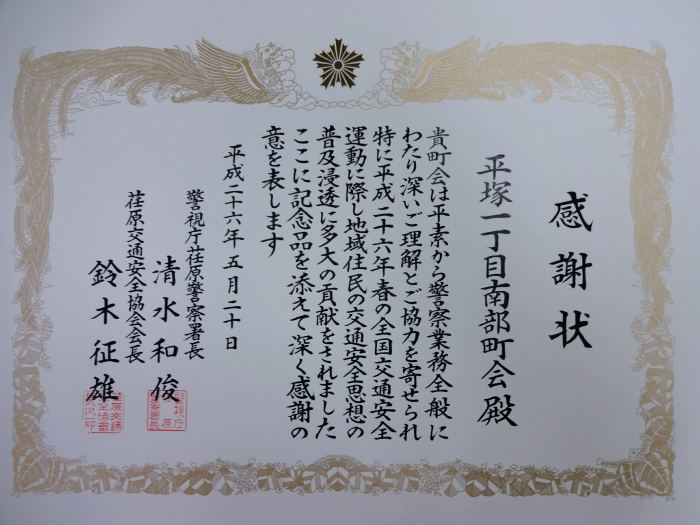 感謝状
平塚一丁目南部町会殿
貴町会は平素から警察業務全般に
わたり深いご理解とご協力を寄せられ
特に平成二十六年春の全国交通安全
運動に際し地域住民の交通安全思想の
普及浸透に多大の貢献をされました
ここに記念品を添えて深く感謝の
意を表します
平成二十六年五月二十日
警視庁荏原警察署長
清水和俊
荏原交通安全協会会長
鈴木征雄